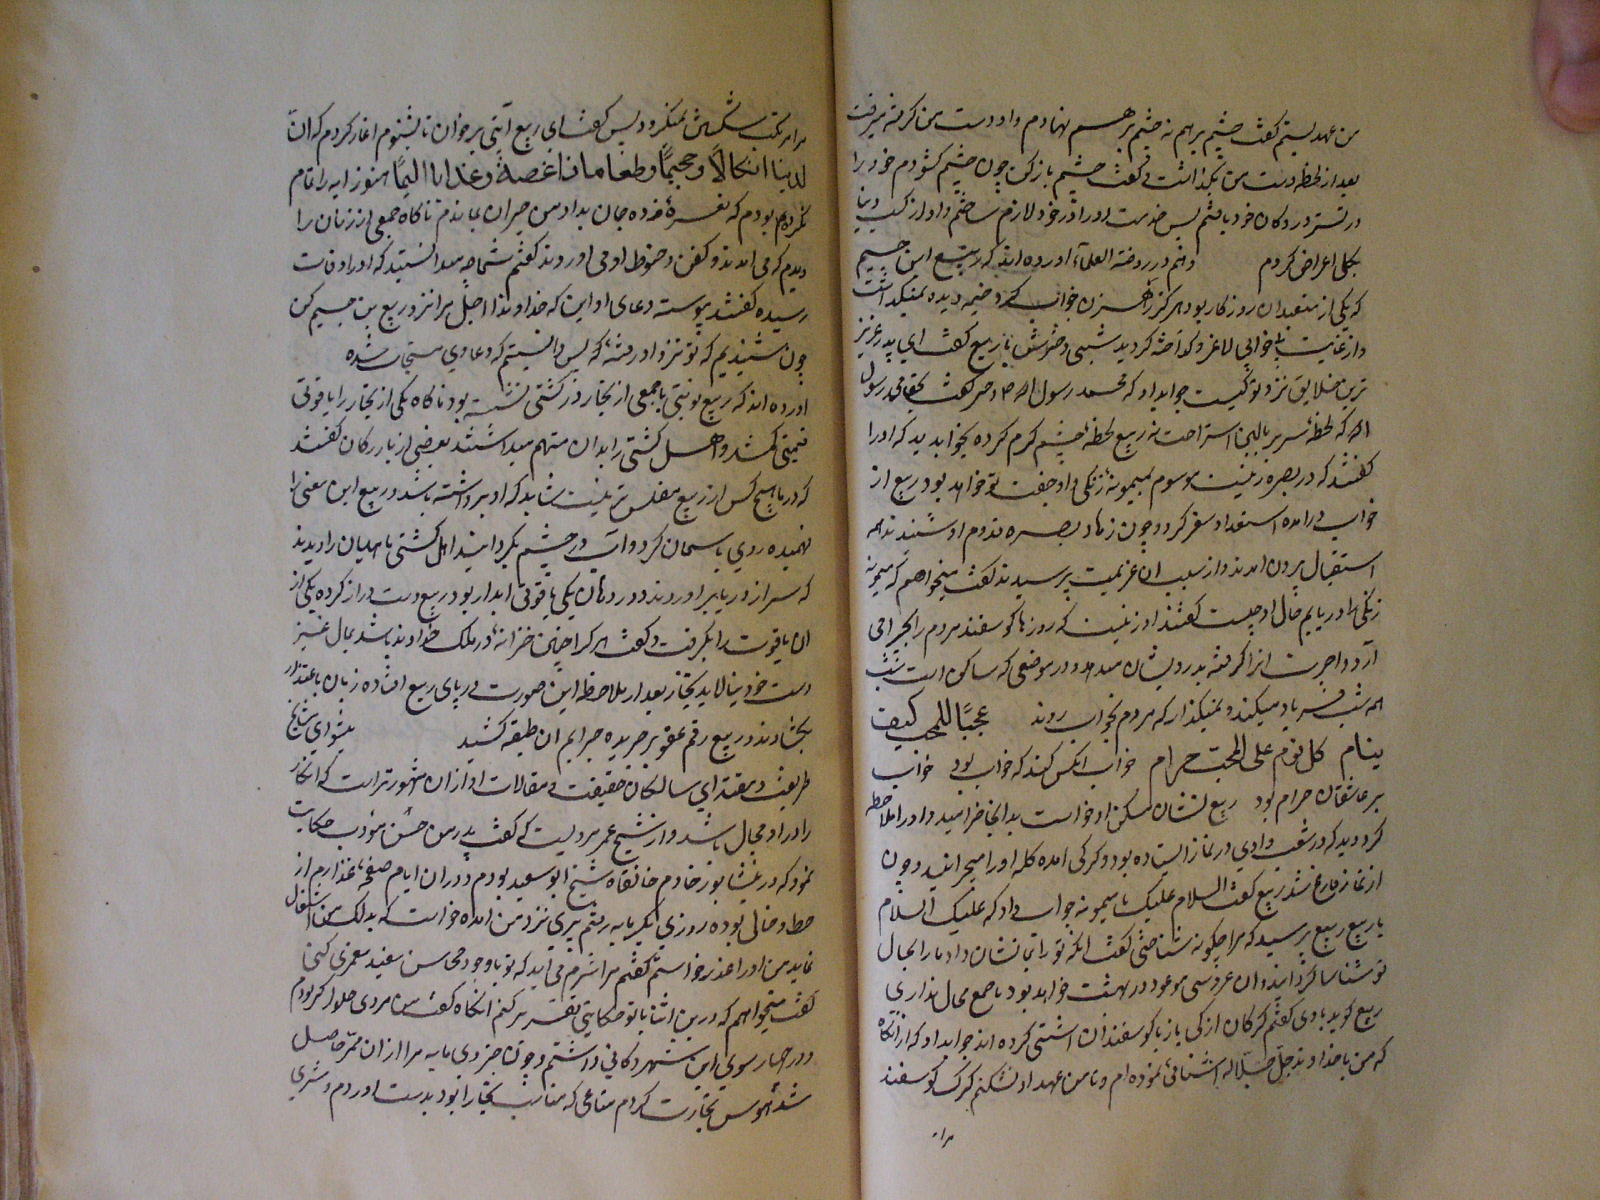 من عهد بستم گفت چشم بر هم نه چشم بر هم نهادم و او دست من گرفته میرفت
بعد از لحظه دست من بگذاشت و گفت چشم باز کن چون چشم گشودم خود را
در تستر در دکان خود یافتم پس خدمت او را در خود لازم ساختم و از کسب دنیا
بکلی اعراض کردم و هم در روضة العلماء آورده اند که ربیع ابن خثیم
که یکی از متعبدان روزگار بود هرگز
و از غایت بی خوابی لاغر و گداخته گردید شبی دخترش با ربیع گفت ای پدر عزیز
ترین خلایق نزد تو کیست جواب داد که محمد رسول الله دختر گفت بحق محمد رسول
الله که لحظهٔ سر ببالین استراحت نه ربیع لحظهٔ چشم گرم کرده بخواب دید که او را
گفتند که در بصره زنیست موسوم بمیمونه زنگی و او جفت تو خواهد بود ربیع از
خواب در آمده استعداد سفر کرد و چون زهاد بصره قدوم او شنیدند همه
استقبال بیرون آمدند و از سبب آن عزیمت پرسیدند گفت میخواهم که میمونه
زنگی را دریابم حال او چیست گفتند او زنیست که روزها گوسفند مردم را بچرا می
آرد و اجرت آنرا گرفته بدرویشان میدهد و در موضعی که ساکن است شب
همه شب فریاد میکند و نمیگذارد که مردم بخواب روند عجبًا للمحب کیف
ینام کل نوم علی المحب حرام خواب آنکس کند که خواب بود خواب
بر عاشقان حرام بود ربیع نشان مسکن او خواست بدانجا خرامید و او را ملاحظه
کرد دید که در شعب وادی در نماز ایستاده بود و گرگی آمده گله او را میچرانید و چون
از نماز فارغ شد ربیع گفت السلام علیک یا میمونه جواب داد که علیک السلام
یا ربیع ربیع پرسید که مرا چگونه شناختی گفت آنکه تو را بما نشان داد ما را بحال
تو شناسا گردانید و آن عروسی موعود در بهشت خواهد بود با جمع محال نداری
ربیع گوید با وی گفتم گرگان از کی باز با گوسفندان آشتی کرده اند جواب داد که از آنگاه
که من با خداوند جل جلاله آشنائی نموده ام و تا من عهد او نشکنم گرگ گوسفند
مرا
مرا نکند پس گفت ای ربیع آیتی بر خوان تا بشنوم آغاز کردم که انّ
لدینا انکالًا و جحیمًا و طعامًا ذا غصة و عذابًا الیمًا هنوز آیه را تمام
نکرده بودم که نعرهٔ زده جان بداد من حیران بماندم تا گاه جمعی از زنان را
دیدم که می آمدند و کفن و حنوط او می آوردند گفتم شما چه میدانستید که او را وفات
رسیده گفتند پیوسته دعای او این که خداوندا اجل مرا نزد ربیع بن خثیم کن
چون شنیدیم که تو نزد او رفتهٔ که پس دانستیم که دعای وی مستجاب شده
آورده اند که ربیع نوبتی با جمعی از تجار در کشتی نشسته بود ناگاه یکی از تجار را یاقوتی
قیمتی گم شد و اهل کشتی را بدان متهم میداشتند بعضی از بازرگانان گفتند
که در ما هیچ کس از ربیع مفلس تر نیست شاید که او برداشته باشد و ربیع این معنی را
فهمیده روی بآسمان کرد و آب در چشم بگردانید اهل کشتی ماهیان را دیدند
که سر از دریا بر آوردند و در دهان یکی یاقوتی آبدار بود ربیع دست دراز کرده یکی از
آن یاقوت را بگرفت و گفت هر کرا چنین خزانهٔ در ملک خداوند باشد بمال غیر
دست خود نیالاید تجار بعد از ملاحظهٔ این صورت در پای ربیع افتاده زبان باعتذار
بگشادند و ربیع رقم عفو بر جریده جرایم آن طبقه کشید پیشوای مشایخ
طریقت و مقتدای سالکان حقیقت و مقالات او از آن مشهورتر است که انکار
را در او مجال باشد و از شیخ عمر مرویست که گفت پدر من حسن مؤدب حکایت
نمود که در نیشابور خادم خانقاه شیخ ابو سعید بودم و در آن ایام صفحهٔ عذارم از
خط و خالی بوده روزی پیری نزد من آمده خواست که بدلک من اشتغال
نماید من او را عذر خواستم گفتم مرا شرم می آید که تو با وجود محاسن سفید مغمزی کنی
گفت میخواهم که در این اثنا با تو حکایتی تقریر کنم آنگاه گفت من مردی حلواگر بودم
و در چهار سوی این شهر دکانی داشتم و چون جزوی مایه مرا از آن ممر حاصل
شد هوس تجارت کردم متاعی که مناسب بخارا بود بدست آوردم و